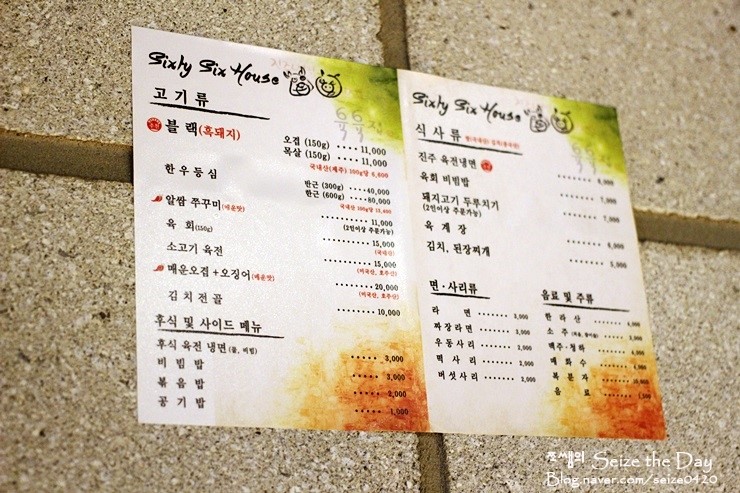 Sixty Six House
고기류
블랙(흑돼지)
오겹 (150g) ····· 11,000
목살 (150g) ····· 11,000
국내산(제주) 100g당 6,600
한우등심
반근 (300g) ····· 40,000
한근 (600g) ····· 80,000
국내산 100g당
알쌈 쭈꾸미(매운맛) ····· 11,000
(2인이상 주문가능)
육 회(150g) ····· 15,000
(국내산)
소고기 육전 ····· 15,000
(미국산, 호주산)
매운오겹+오징어(매운맛) ····· 20,000
(미국산, 호주산)
김치전골 ····· 10,000
후식 및 사이드 메뉴
후식 육전 냉면(물, 비빔) ····· 3,000
비빔밥 ····· 3,000
볶음밥 ····· 2,000
공기밥 ····· 1,000
Sixty Six House
식사류
진주 육전냉면 ········ 6,000
육회 비빔밥 ········ 7,000
돼지고기 두루치기 ········ 7,000
(2인이상 주문가능)
육 계 장 ········ 6,000
김치, 된장찌개 ········ 5,000
면·사리류
라 면 ········ 3,000
짜장라면 ········ 3,000
우동사리 ········ 3,000
떡 사리 ········ 3,000
버섯사리 ········ 3,000
음료 및 주류
한 라 산 ········ 4,000
소 주 ········ 3,000
맥주·청하 ········ 4,000
매 화 수 ········
복 분 자 ········ 10,000
음 료 ········ 1,000
존쌤의 Seize the Day
Blog.naver.com/seize0420